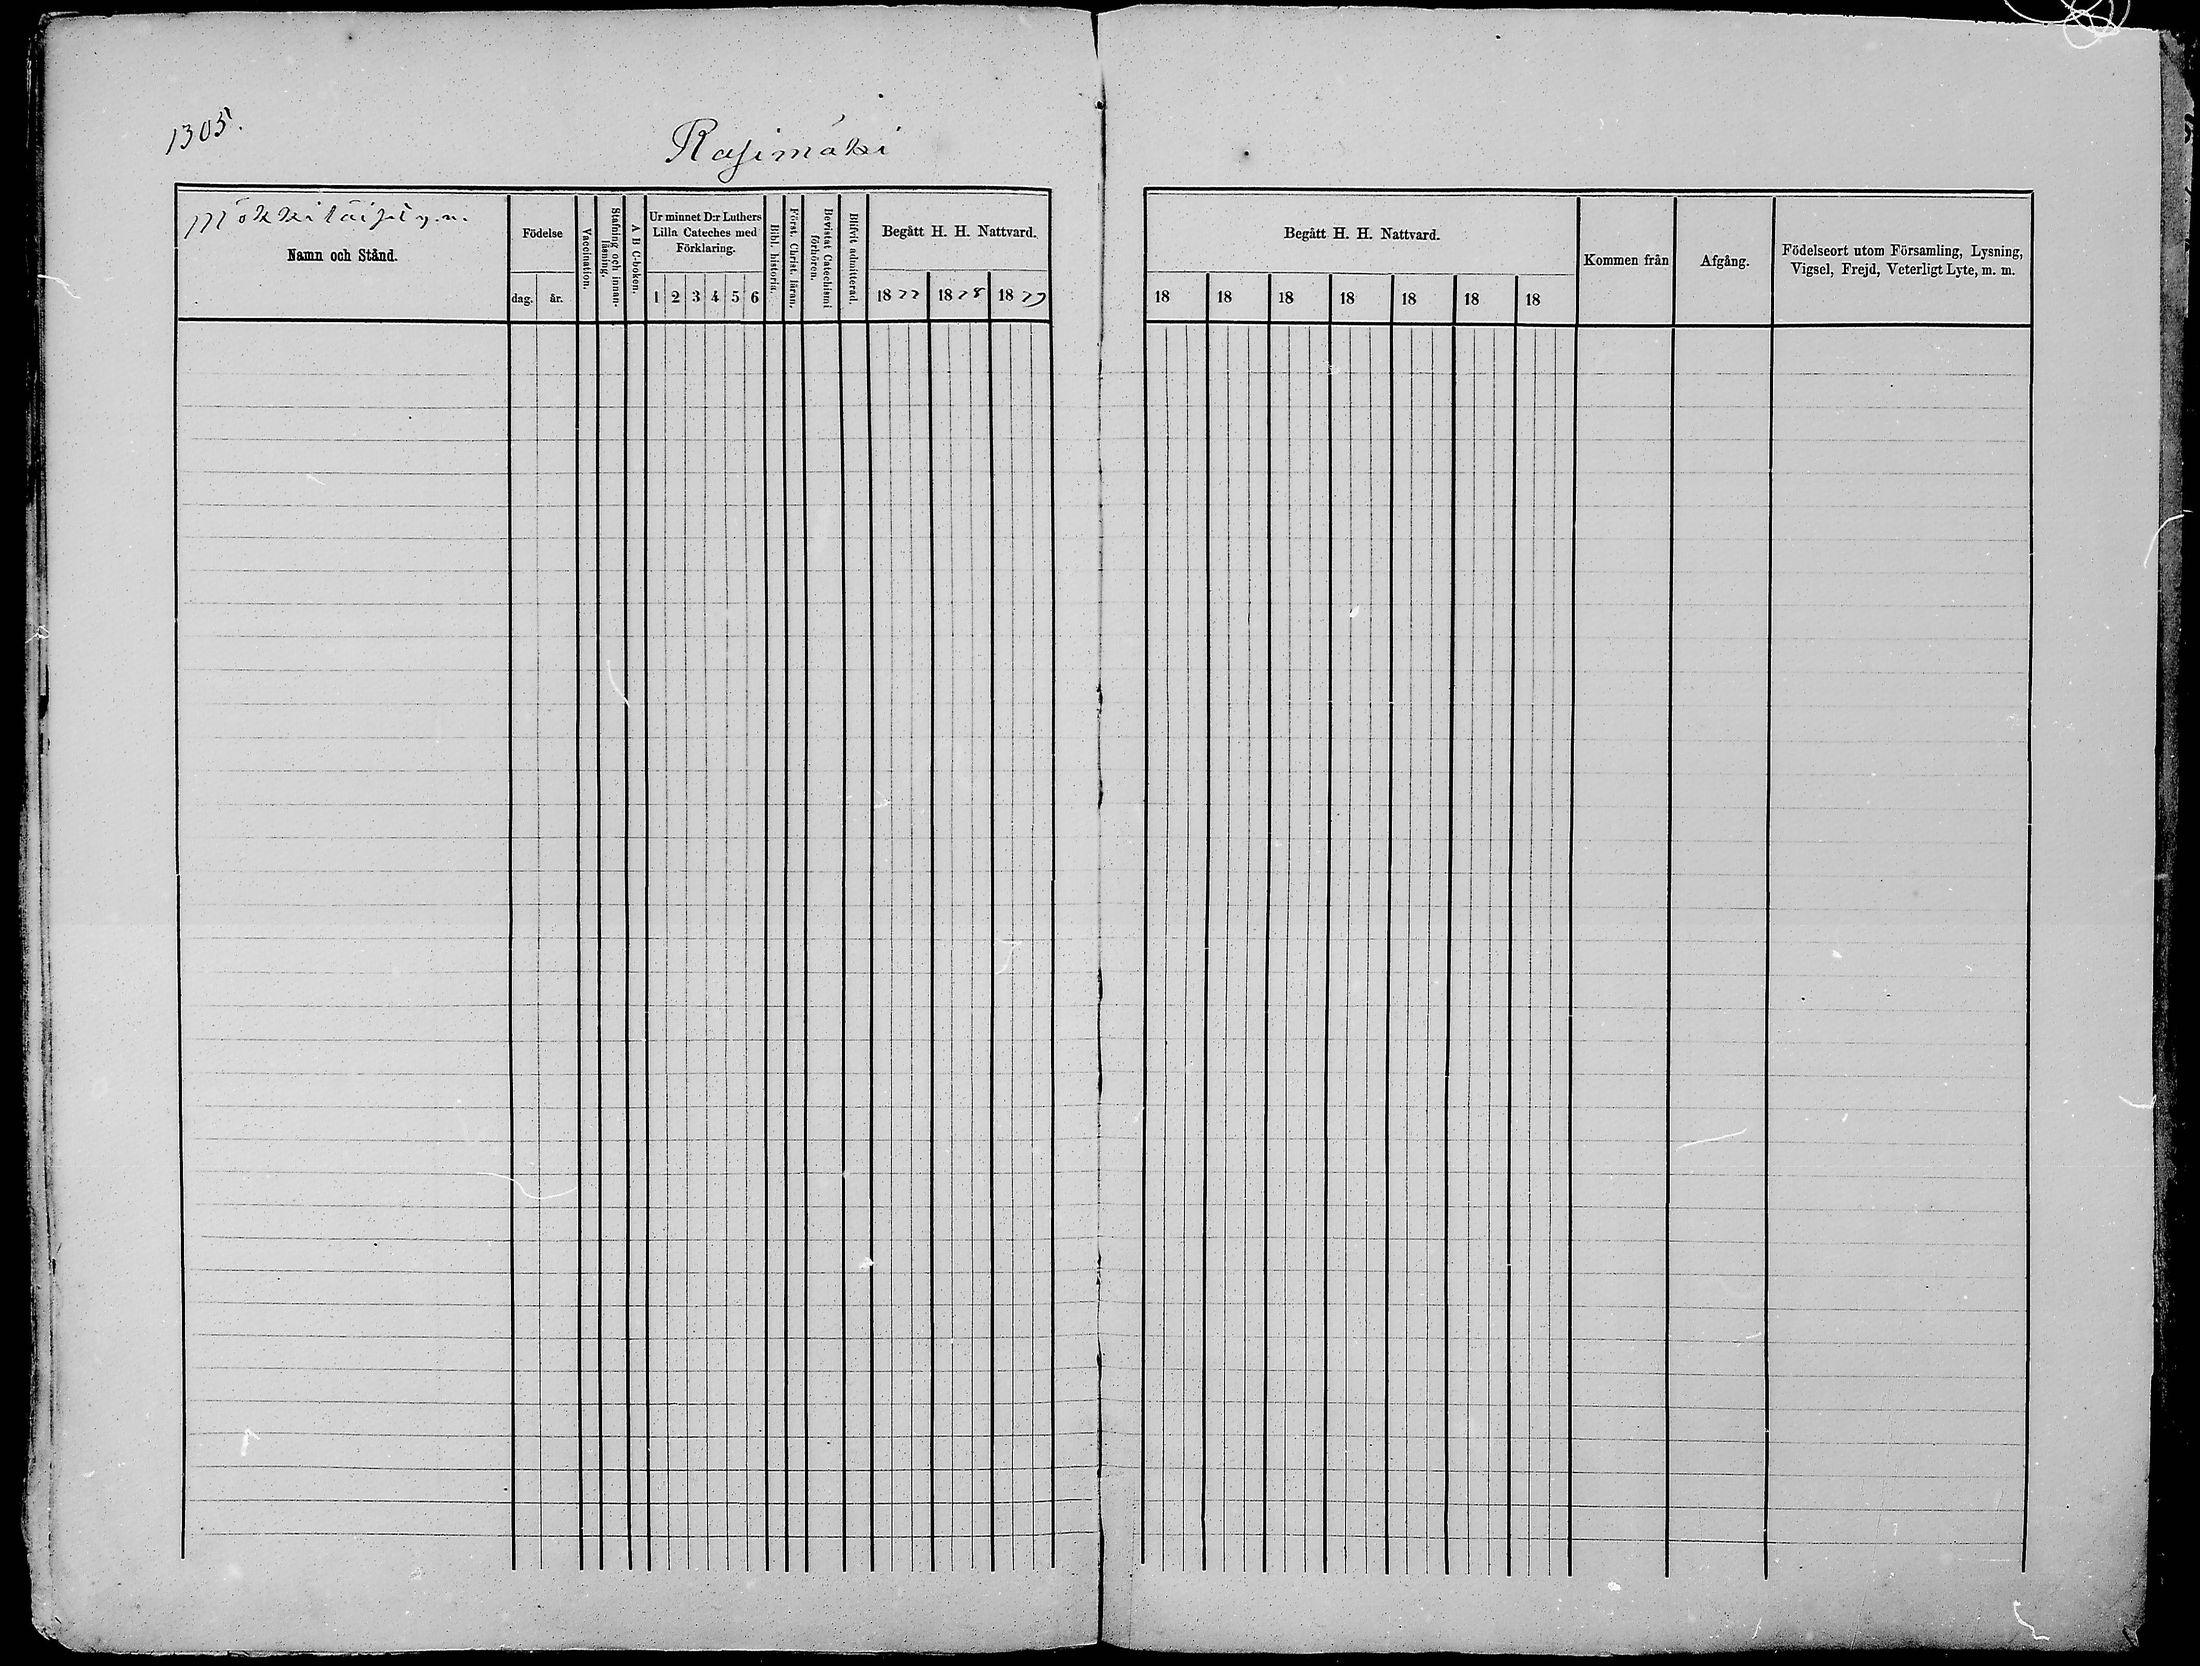 1305.
Rasimäki
Mökkiläiset y.m.
Namn och Stånd.
Födelse
dag.
år.
Vaccination.
Stafning och innan-
läsning.
A B C-boken.
Ur minnet D:r Luthers
Lilla Cateches med
Förklaring.
1 2 3 4 5 6
Bibl. historia.
Först. Christ. läran.
Bevistat Catechismi
förhören.
Blifvit admitterad.
Begått H. H. Nattvard.
1877 1878 1879
Begått H. H. Nattvard.
18 18 18 18 18 18 18
Kommen från
Afgång.
Födelseort utom Församling, Lysning,
Vigsel, Frejd, Veterligt Lyte, m. m.